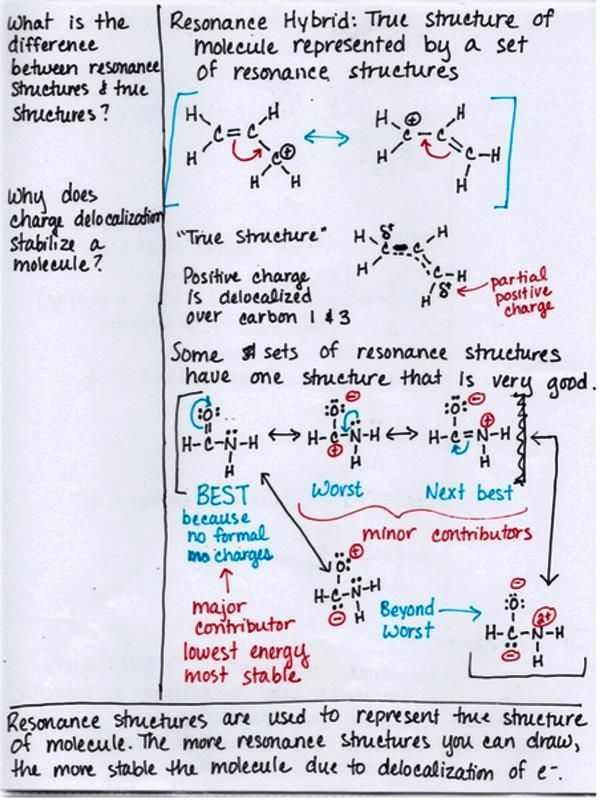 What is the
difference
between resonance
structures & true
structures?
Why does
charge delocalization
stabilize a
molecule?
Resonance Hybrid: True structure of
molecule represented by a set
of resonance structures
H H
C=C
H C⊕
H H
⊕
H C-C H
H C-H
H
"True Structure"
Positive charge
is delocalized
over carbon 1 & 3
H δ+ H
C C
H C-H
H δ+
partial
positive
charge
Some sets of resonance structures
have one structure that is very good.
:O:
H-C-N-H
H
⊖
:O:
H-C-N-H
⊕ H
⊖
:O: ⊕
H-C=N-H
H
BEST
because
no formal
charges
Worst
Next best
minor contributors
major
contributor
lowest energy
most stable
⊕
:O:
H-C-N-H
⊖ H
Beyond
worst
⊖
:O: 2+
H-C-N-H
⊖ H
Resonance structures are used to represent true structure
of molecule. The more resonance structures you can draw,
the more stable the molecule due to delocalization of e-.